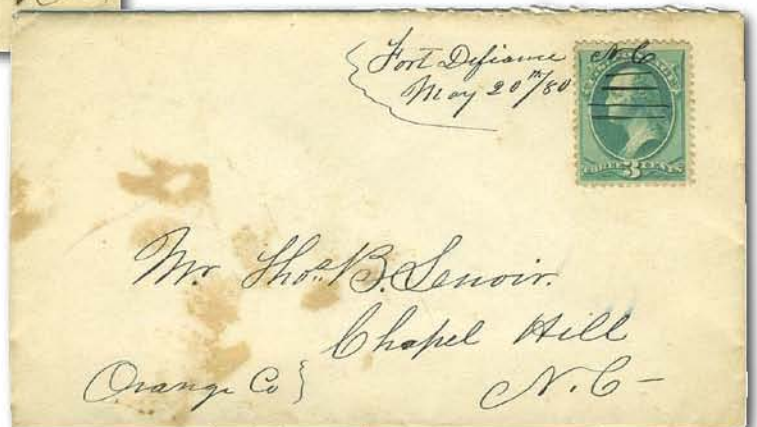 Fort Defiance N.C
May 20th/80
THREE 3 CENTS
Mr. Thos B. Lenoir.
Chapel Hill
Orange Co }
N.C-